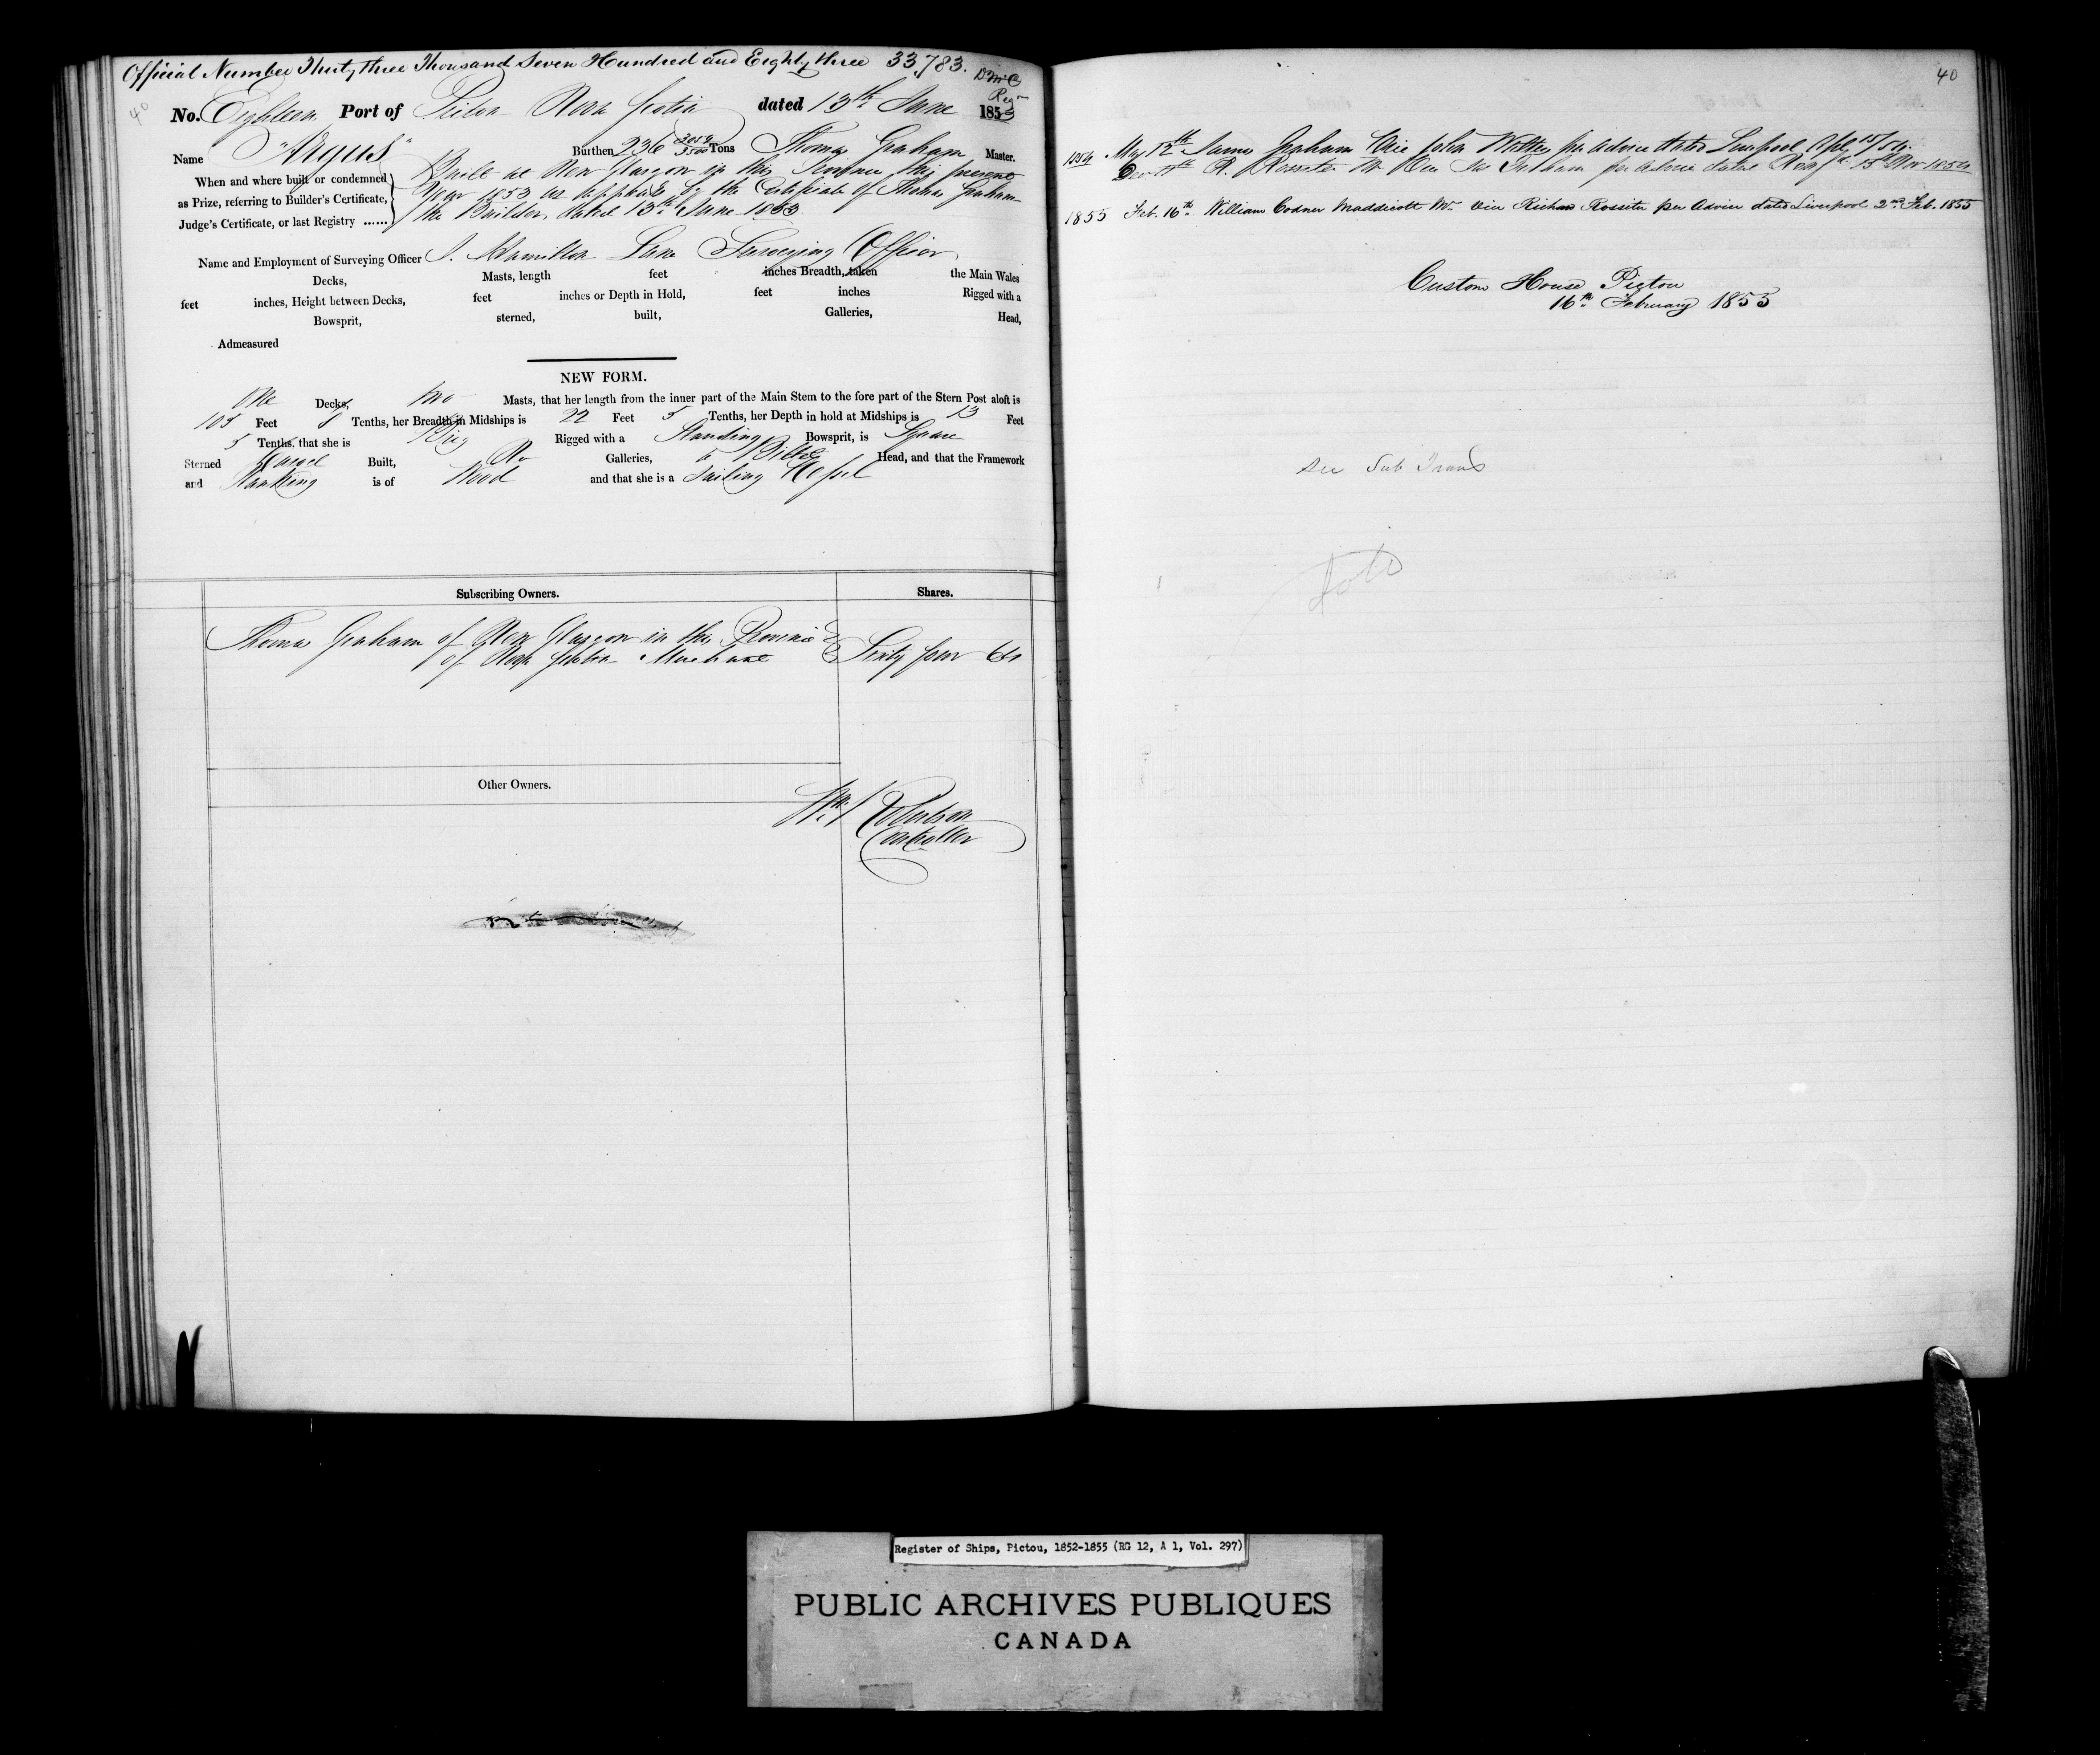 Official Number Thirty three Thousand Seven Hundred and Eighty three 33,783.
Regr
40
No. Eighteen Port of Pictou Nova Scotia dated 13th June 1853
Name "Argus" Burthen 236 Tons Thomas Graham Master.
When and where built or condemned as Prize, referring to Builder's Certificate, Judge's Certificate, or last Registry ......
Built at New Glasgow in this Province this present
Year 1853 as appears by the Certificate of Thomas Graham
the Builder, dated 13th June 1853.
Name and Employment of Surveying Officer Surveying Officer
Decks, Masts, length feet inches Breadth, taken the Main Wales
feet inches, Height between Decks, feet inches or Depth in Hold, feet inches Rigged with a
Bowsprit, sterned, built, Galleries, Head,
Admeasured
NEW FORM.
One Decks, two Masts, that her length from the inner part of the Main Stem to the fore part of the Stern Post aloft is
105 Feet 8 Tenths, her Breadth in Midships is 22 Feet 5 Tenths, her Depth in hold at Midships is 13 Feet
5 Tenths, that she is Brig Rigged with a Standing Bowsprit, is Square
Sterned Carvel Built, No Galleries, Billet Head, and that the Framework
and Planking is of Wood and that she is a Sailing Vessel
Subscribing Owners. Shares.
Thomas Graham of New Glasgow in the Province
of Nova Scotia Merchant Sixty four 64
Other Owners.
Robertson
Controller
40
1854 May 12th James Graham Vice John per Advice dated Liverpool Apl 15/54.
Decr R. Rossiter Mr Vice per Advice dated 15th Nov 1854
1855 Feb. 16th William Codner Maddicott Mr. Vice Richd Rossiter per Advice dated Liverpool 2nd Feb. 1855
Custom House Pictou
16th February 1855
See Sub Trans
Register of Ships, Pictou, 1852-1855 (RG 12, A 1, Vol. 297)
PUBLIC ARCHIVES PUBLIQUES
CANADA